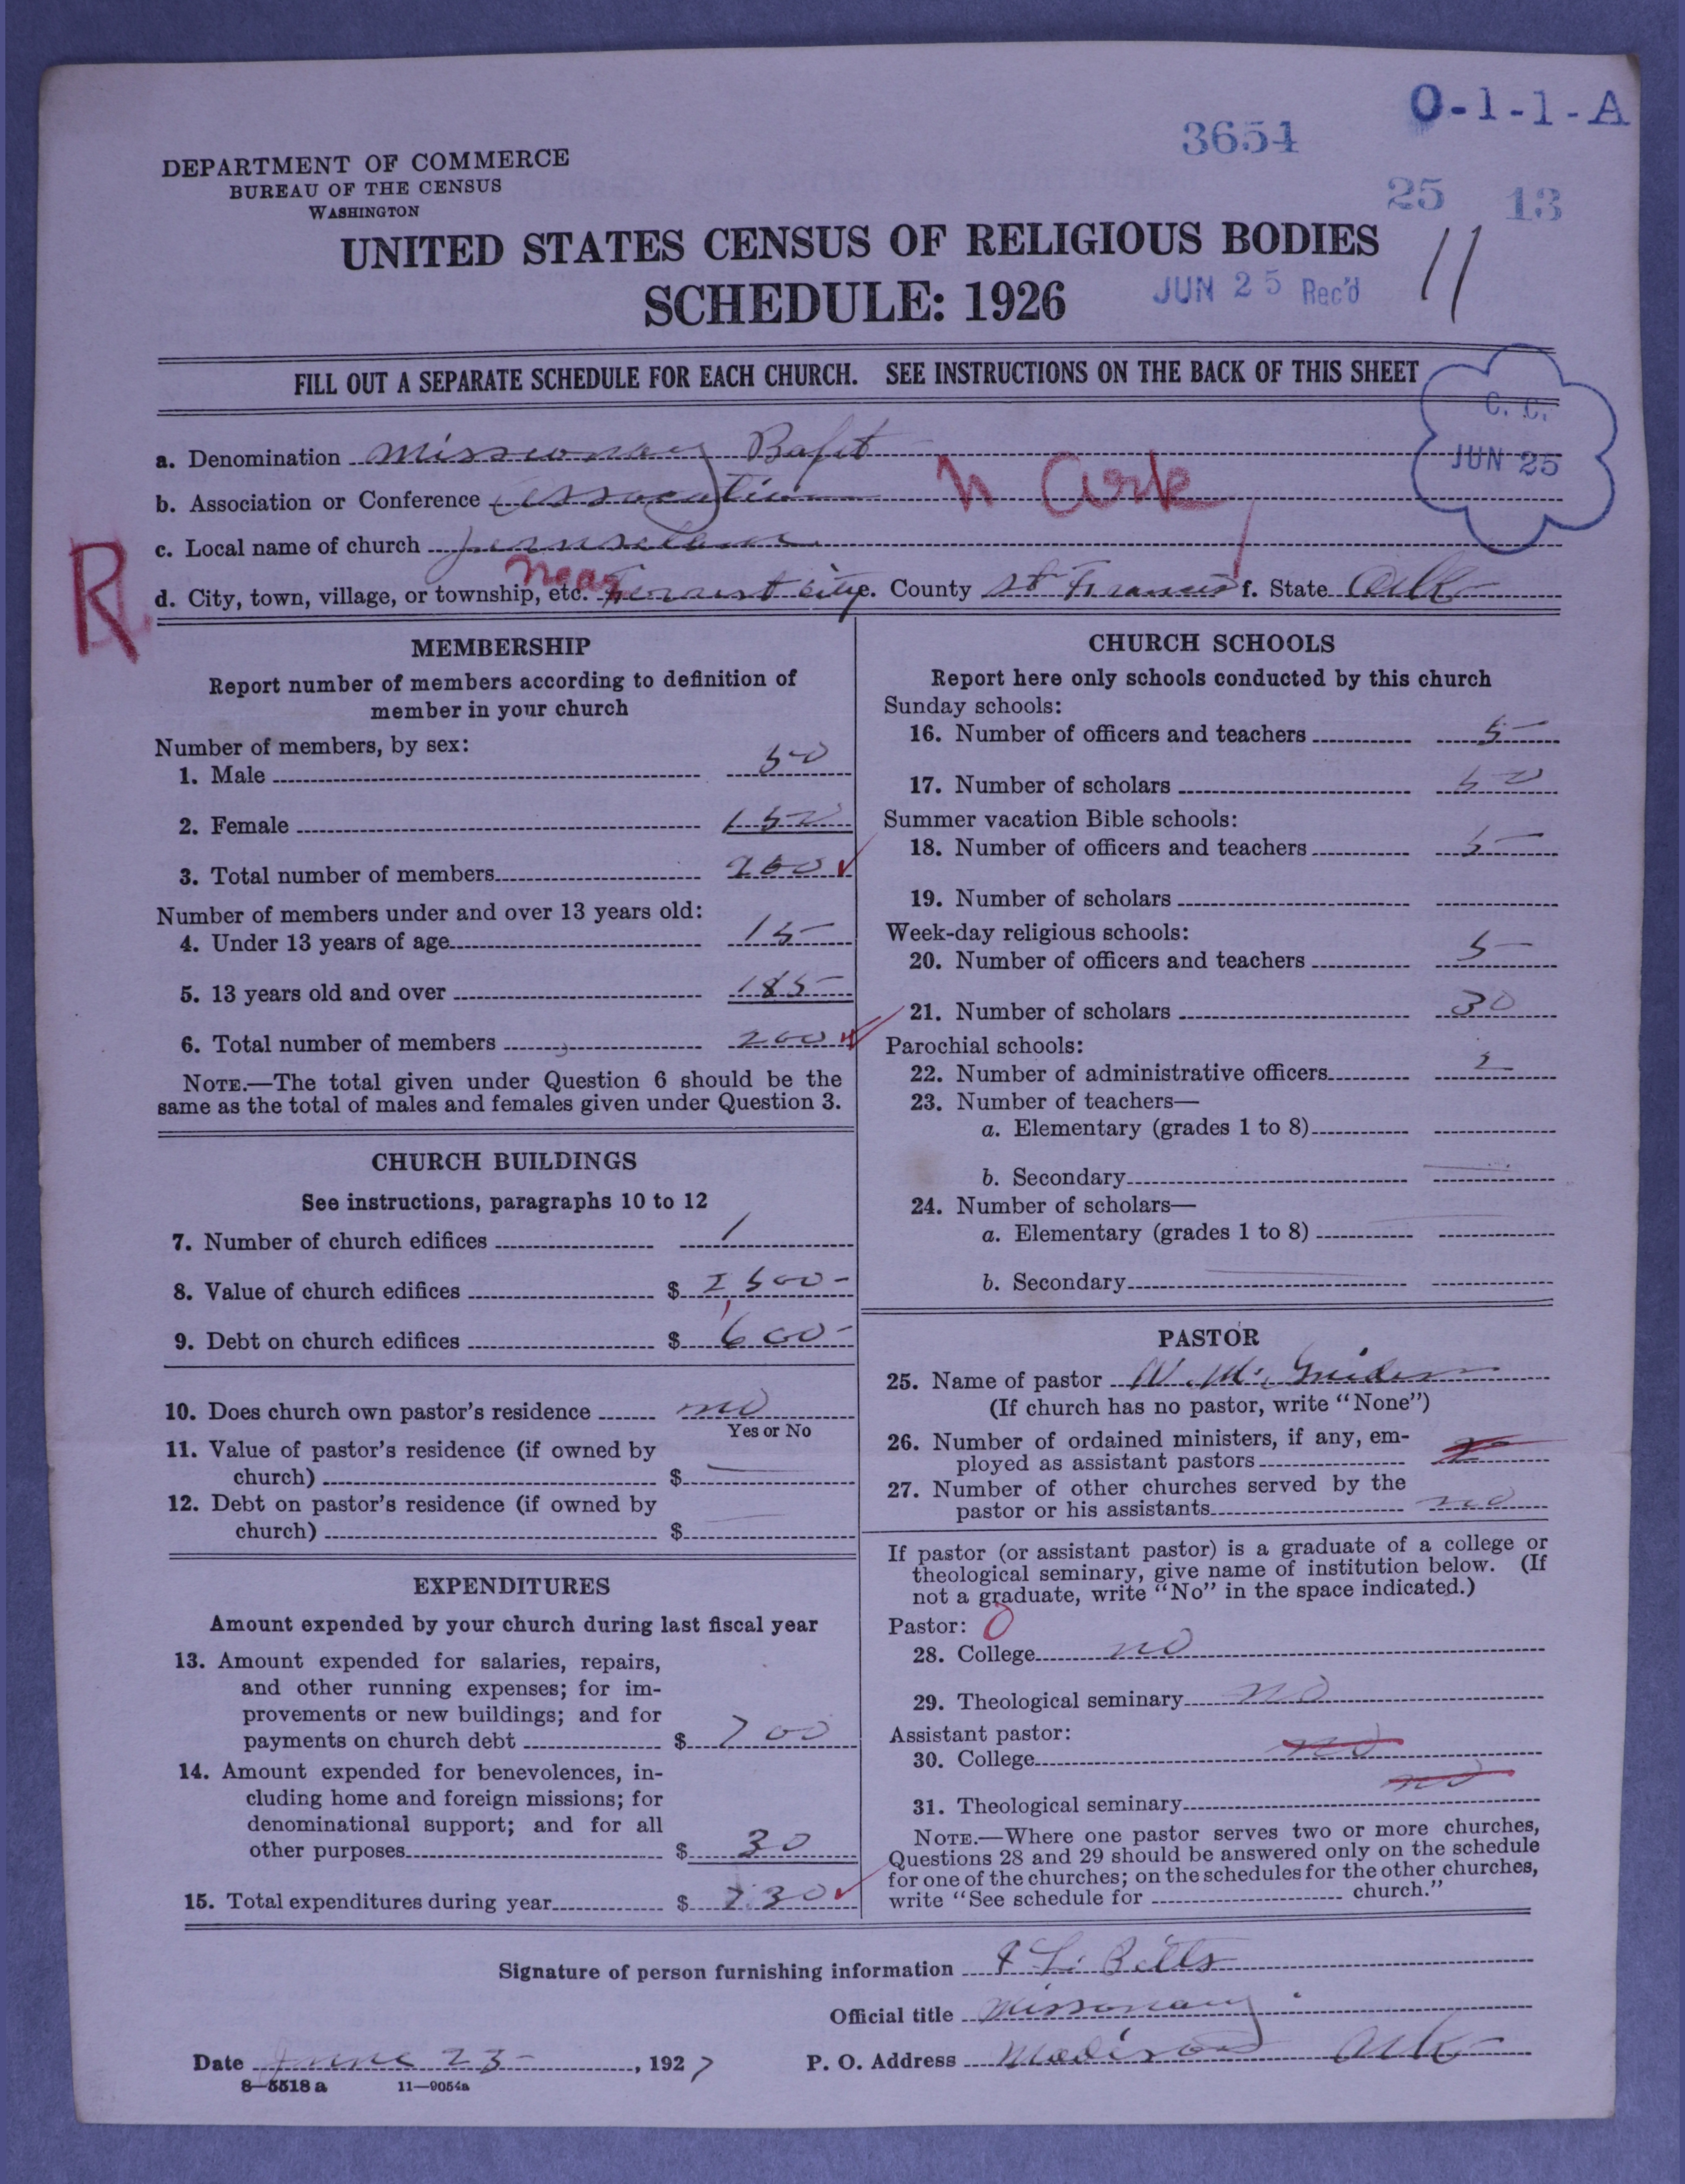 O-1-1-A
3654
DEPARTMENT OF COMMERCE
BUREAU OF THE CENSUS
WASHINGTON
25 13
UNITED STATES CENSUS OF RELIGIOUS BODIES
SCHEDULE: 1926
JUN 25 Rec'd
11
FILL OUT A SEPARATE SCHEDULE FOR EACH CHURCH. SEE INSTRUCTIONS ON THE BACK OF THIS SHEET
C. C.
JUN 25
a. Denomination Missionary Bapt
b. Association or Conference Association n Ark
c. Local name of church Jeruselam
R
d. City, town, village, or township, etc. near Forrest City e. County St Francis f. State Ark
MEMBERSHIP
Report number of members according to definition of
member in your church
Number of members, by sex:
1. Male 50
2. Female 150
3. Total number of members 200
Number of members under and over 13 years old:
4. Under 13 years of age 15
5. 13 years old and over 185
6. Total number of members 200
NOTE.—The total given under Question 6 should be the
same as the total of males and females given under Question 3.
CHURCH BUILDINGS
See instructions, paragraphs 10 to 12
7. Number of church edifices 1
8. Value of church edifices $ 2500-
9. Debt on church edifices $ 600-
10. Does church own pastor's residence no
Yes or No
11. Value of pastor's residence (if owned by
church) $
12. Debt on pastor's residence (if owned by
church) $
EXPENDITURES
Amount expended by your church during last fiscal year
13. Amount expended for salaries, repairs,
and other running expenses; for im-
provements or new buildings; and for
payments on church debt $ 700
14. Amount expended for benevolences, in-
cluding home and foreign missions; for
denominational support; and for all
other purposes $ 30
15. Total expenditures during year $ 730
CHURCH SCHOOLS
Report here only schools conducted by this church
Sunday schools:
16. Number of officers and teachers 5
17. Number of scholars 50
Summer vacation Bible schools:
18. Number of officers and teachers 5
19. Number of scholars
Week-day religious schools:
20. Number of officers and teachers 5
21. Number of scholars 30
Parochial schools:
22. Number of administrative officers 2
23. Number of teachers—
a. Elementary (grades 1 to 8)
b. Secondary
24. Number of scholars—
a. Elementary (grades 1 to 8)
b. Secondary
PASTOR
25. Name of pastor W. M.
(If church has no pastor, write "None")
26. Number of ordained ministers, if any, em-
ployed as assistant pastors
27. Number of other churches served by the
pastor or his assistants no
If pastor (or assistant pastor) is a graduate of a college or
theological seminary, give name of institution below. (If
not a graduate, write "No" in the space indicated.)
Pastor: 0
28. College no
29. Theological seminary no
Assistant pastor:
30. College no
31. Theological seminary no
NOTE.—Where one pastor serves two or more churches,
Questions 28 and 29 should be answered only on the schedule
for one of the churches; on the schedules for the other churches,
write "See schedule for church."
Signature of person furnishing information
Official title Missonary
Date June 23, 1927
P. O. Address Madison Ark
8-5518 a 11-9054a